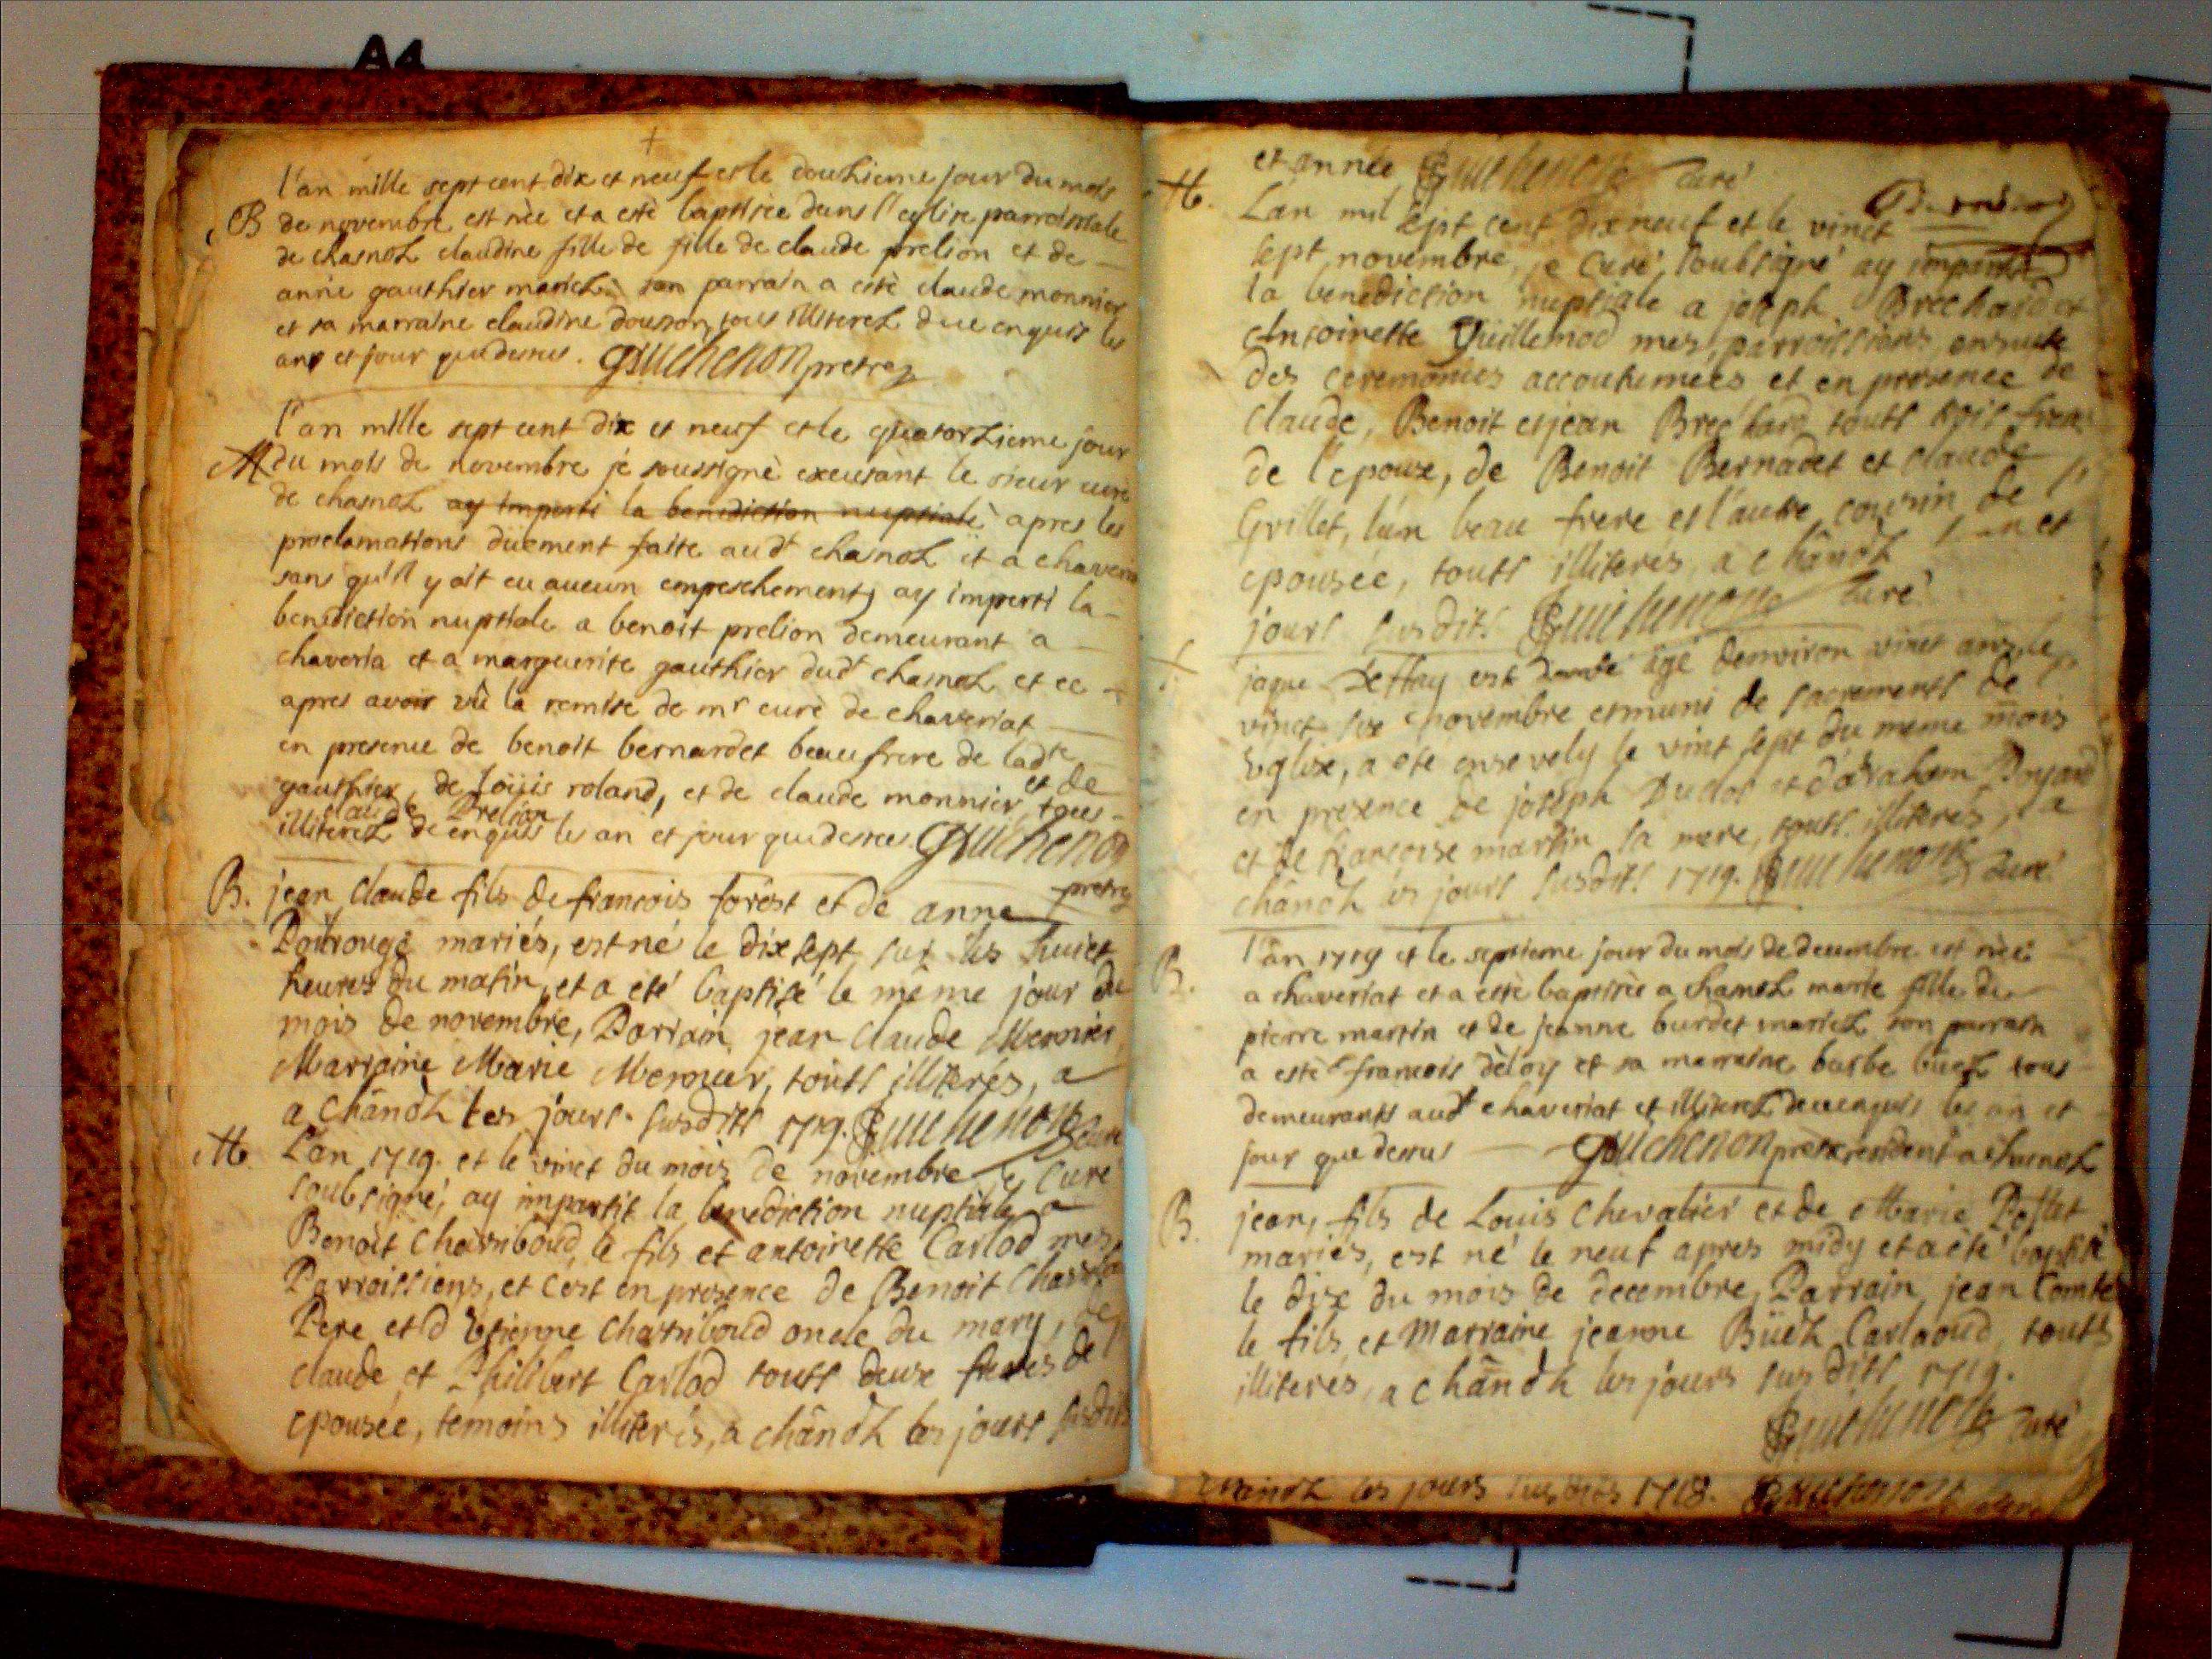 A4
l'an mille sept cent dix et neuf et le douzieme jour du mois
B de novembre est née et a esté baptisée dans l'eglise parroissiale
de chasnoz claudine fille de fille de claude prelion et de
anne gauthier mariez son parrain a esté claude monnier
et sa marraine claudine dousson tous illiterez due enquis les
an et jour que dessus. Guichenon pretre
l'an mille sept cent dix et neuf et le quatorzieme jour
M du mois de novembre je soussigné excusant le sieur curé
de chasnoz ay imperti la benediction nuptiale apres les
proclamations düement faite audt chasnoz et a chaveria
sans qu'il y ait eu aucun empeschement, ay imperti la
benediction nuptiale a benoit prelion demeurant a
chaveria et a marguerite gauthier dudt chasnoz et ce
apres avoir vû la remise de mr curé de chaveriat
en presence de benoit bernardet beaufrere de ladte
gauthier, de loüis roland, et de claude monnier et de
claude Prelion tous
illiterez de enquis les an et jour que dessus Guichenon
pretre
B. jean claude fils de francois forest et de anne
Poitrouge mariés, est né le dix sept sur les huict
heures du matin, et a eté baptisé le même jour du
mois de novembre, Parrain jean claude Mernier
Marraine Marie Mernier, touts illiterés, a
a chânoz les jours susdits 1719. Guichenon curé
M. L'an 1719. et le vinct du mois de novembre je curé
soubsigné, ay impartit la benediction nuptiale a
Benoit Charnboud, le fils et antoinette Carlod mes
Parroissiens, et c'est en presence de Benoit
Pere et d'Etienne Charnboud oncle du mary, de
claude et Philibert Carlod touts deux freres de l'
epousée, temoins illiterés, a chânoz les jours susdits
et année Guichenon curé
M. L'an mil sept cent dix neuf et le vinct
sept novembre, je Curé soubsigné ay imparti
la benediction nuptiale a joseph Brechard et
Antoinette Guillemod mes parroissiens ensuite
des ceremonies accoutumées et en presence de
Claude, Benoit et jean Brechard touts trois freres
de l'epoux, de Benoit Bernadet et claude
Grillet, l'un beau frere et l'autre cousin de l'
epousée, touts illiterés, a chânoz l'an et
jours susdits Guichenon curé
jaque Deffay est agé d'environ vinct ans le
vinct six novembre et muni de sacrements de
Eglise, a eté ensevely le vint sept du meme mois
en presence de joseph Dudot et d'abraham
et de francoise martin sa mere, touts illiterés, a
chânoz les jours susdits 1719. Guichenon curé
B. l'an 1719 et le septieme jour du mois de decembre est née
a chaveriat et a esté baptisée a chanoz marie fille de
pierre martin et de jeanne burdet mariez son parrain
a esté francois déloy et sa marraine barbe buez tous
demeurants audt chaveriat et illiterez de enquis les an et
jour que dessus Guichenon pretre residant a chanoz
B. jean, fils de Louis Chevalier et de Marie Pestet
mariés, est né le neuf apres midy et a eté baptisé
le dix du mois de decembre, Parrain jean Comte
le fils, et Marraine jeanne Büez Carlaoud, touts
illiterés, a chânoz les jours susdits 1719.
Guichenon curé
chanoz les jours susdits 1718. Guichenon curé